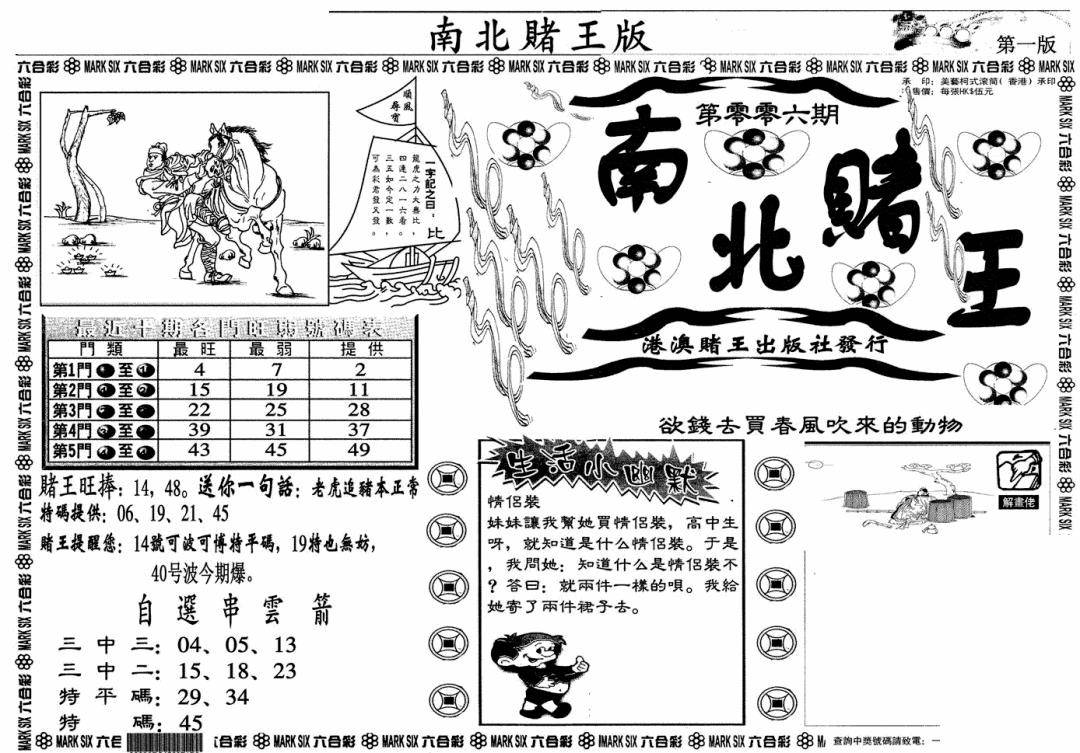 南北賭王版
第一版
六合彩 MARK SIX 六合彩 MARK SIX 六合彩 MARK SIX 六合彩 MARK SIX 六合彩 MARK SIX 六合彩 MARK SIX 六合彩 MARK SIX 六合彩 MARK SIX 六合彩 MARK SIX 六合彩 MARK SIX
承印：美藝柯式滾筒（香港）承印
售價：每張HK$伍元
順風
尋寶
一字記之曰：比
龍虎之力大無比，
四連二八一六看。
三五如今定一數，
可為彩君發又發。
第零零六期
南北賭王
港澳賭王出版社發行
最近十期各門旺弱號碼表
門類 最旺 最弱 提供
第1門 至 4 7 2
第2門 至 15 19 11
第3門 至 22 25 28
第4門 至 39 31 37
第5門 至 43 45 49
賭王旺捧：14，48。送你一句話：老虎追豬本正常
特碼提供：06、19、21、45
賭王提醒您：14號可波可博特平碼，19特也無妨，
40号波今期爆。
自選串雲箭
三中三：04、05、13
三中二：15、18、23
特平碼：29、34
特碼：45
欲錢去買春風吹來的動物
生活小幽默
情侶裝
妹妹讓我幫她買情侶裝，高中生
呀，就知道是什么情侶裝。于是
，我問她：知道什么是情侶裝不
？答曰：就兩件一樣的唄。我給
她寄了兩件裙子去。
解畫佬
MARK SIX 六合彩 MARK SIX 六合彩 MARK SIX 六合彩 MARK SIX 六合彩 MARK SIX 六合彩 MARK SIX 六合彩
查詢中獎號碼請致電：一